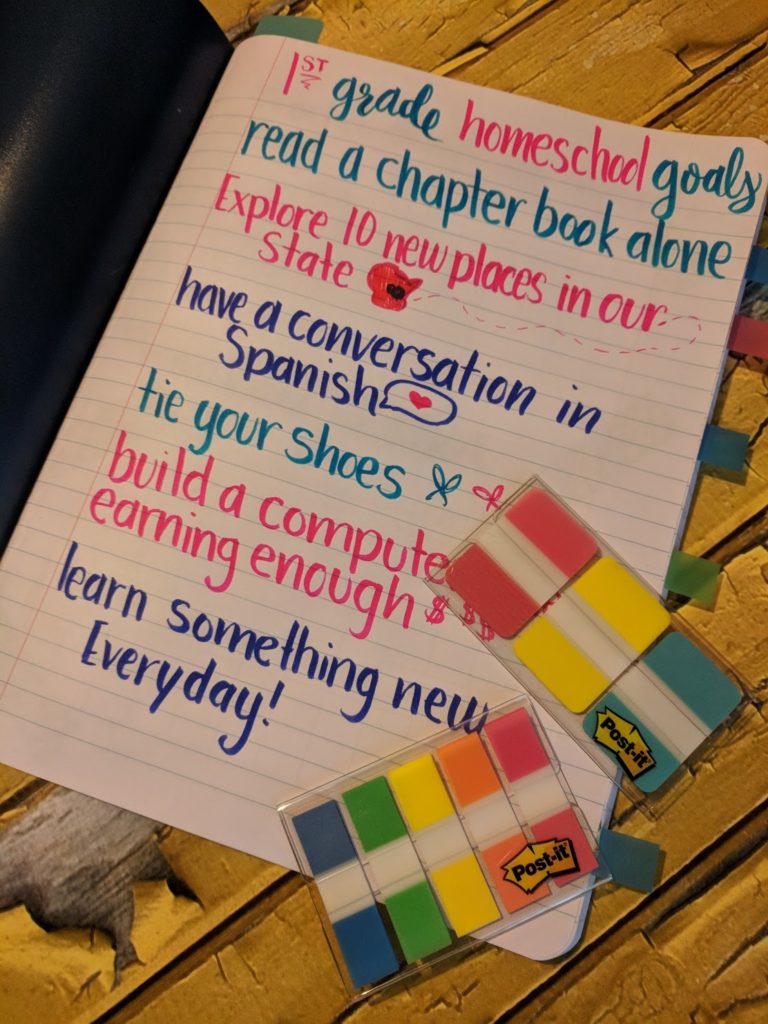 1ST grade homeschool goals
read a chapter book alone
Explore 10 new places in our
State
have a conversation in
Spanish
tie your shoes
build a compute
earning enough $ $ $$
learn something new
Everyday!
Post-it
Post-it